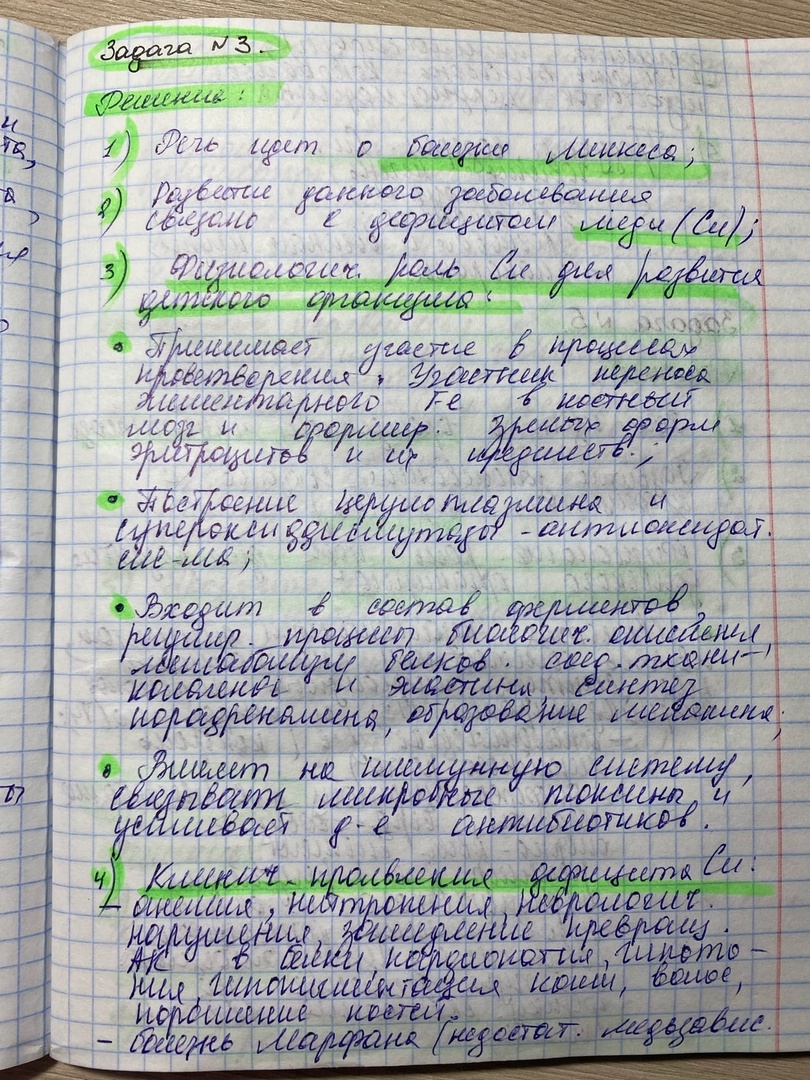 Задача N3.
Решение:
1) Речь идёт о болезни Менкеса;
2) Развитие данного заболевания
связано с дефицитом меди (Cu);
3) Физиологич. роль Cu для развития
детского организма:
• Принимает участие в процессах
кроветворения. Участник переноса
элементарного Fe в костный
мозг и формир. зрелых форм
эритроцитов и их предшеств.;
• Построение церулоплазмина и
супероксиддисмутазы - антиоксидат.
сис-ма;
• Входит в состав ферментов,
регулир. процессы биологич. окисления,
метаболизм белков соед. ткани -
коллагена и эластина, синтез
норадреналина, образование меланина;
• Влияет на иммунную систему,
связывает микробные токсины и
усиливает д-е антибиотиков.
4) Клинич. проявления дефицита Cu:
- анемия, нейтропения, неврологич.
нарушения, замедление превращ.
АК в белки, кардиопатия, гипото-
ния, гипопигментация кожи, волос,
поражение костей.
- болезнь Марфана (недостат. медьзавис.
та,